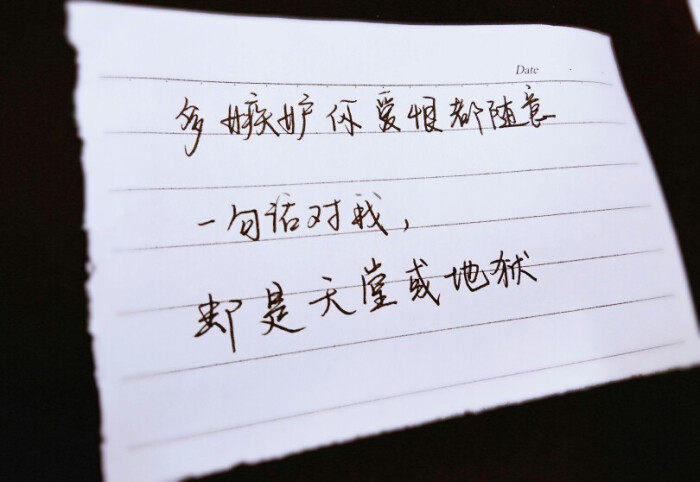 Date
多嫉妒你爱恨都随意
一句话对我，
却是天堂或地狱